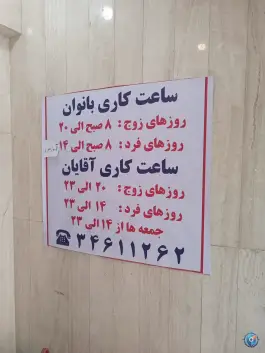 ساعت کاری بانوان
روزهای زوج : ۸ صبح الی ۲۰
روزهای فرد : ۸ صبح الی ۱۴
ساعت کاری آقایان
روزهای زوج : ۲۰ الی ۲۳
روزهای فرد : ۱۴ الی ۲۳
جمعه ها از ۱۴ الی ۲۳
۳۴۶۱۱۲۶۲